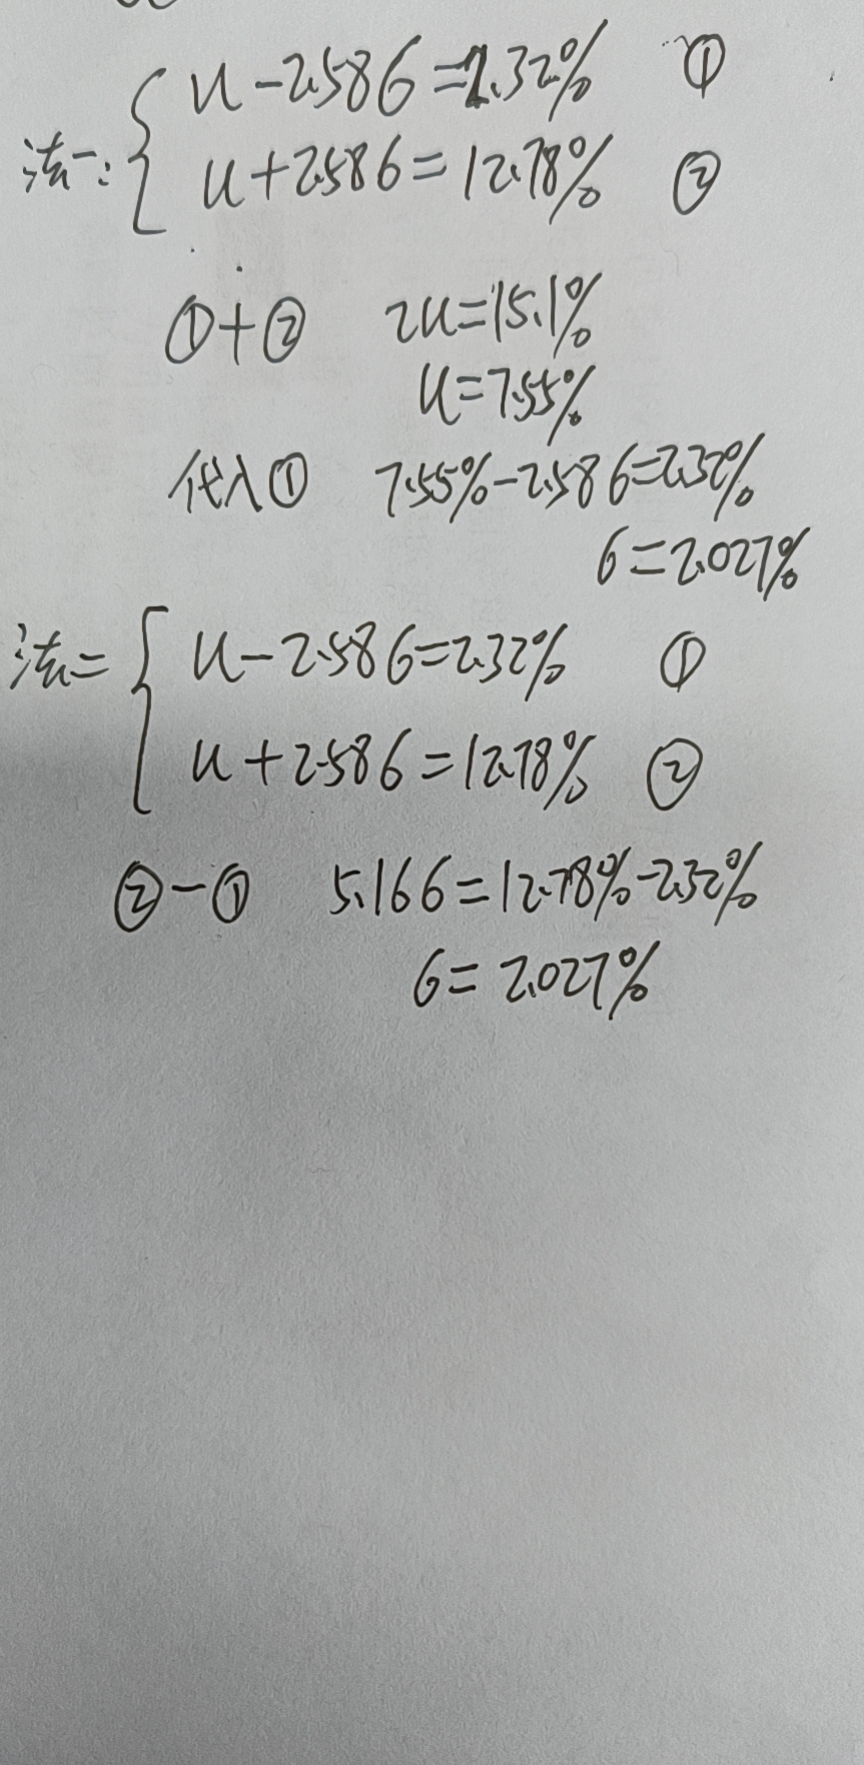 法一: { u-2.58σ=2.32% ①
u+2.58σ=12.78% ②
①+② 2u=15.1%
u=7.55%
代入① 7.55%-2.58σ=2.32%
σ=2.027%
法二 { u-2.58σ=2.32% ①
u+2.58σ=12.78% ②
②-① 5.16σ=12.78%-2.32%
σ=2.027%